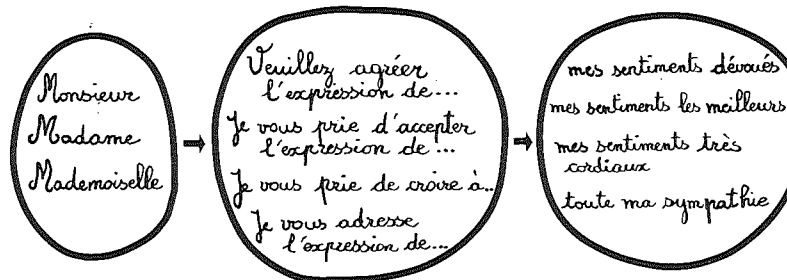 Monsieur
Madame
Mademoiselle
Veuillez agréer
l'expression de...
Je vous prie d'accepter
l'expression de...
Je vous prie de croire à...
Je vous adresse
l'expression de...
mes sentiments dévoués
mes sentiments les meilleurs
mes sentiments très
cordiaux
toute ma sympathie